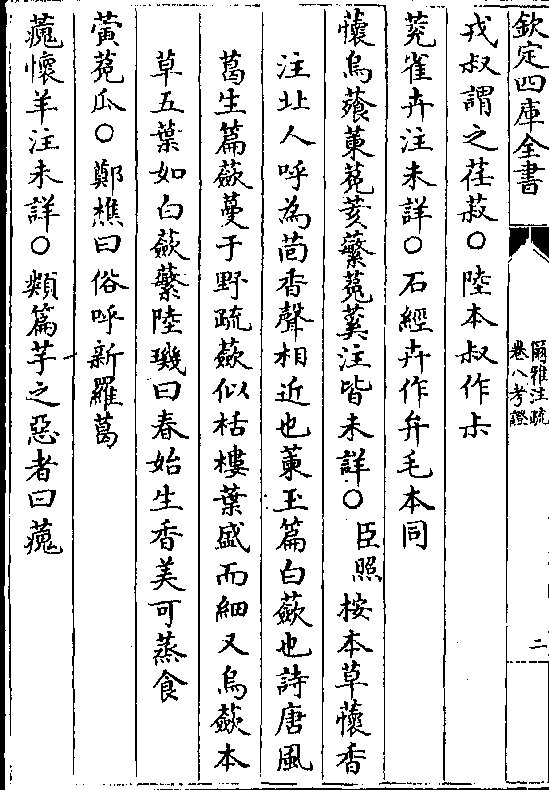 欽定四庫全書
爾雅注疏
卷八考證
二
戎叔謂之荏菽○陸本叔作尗
菟雀卉注未詳○石經卉作弁毛本同
懷烏薞萰菟荄蘩菟蒵注皆未詳○臣照按本草懷香
注北人呼為茴香聲相近也萰玉篇白蘞也詩唐風
葛生篇蘞蔓于野疏蘞似栝樓葉盛而細又烏蘞本
草五葉如白蘞蘩陸璣曰春始生香美可蒸食
黃菟瓜○鄭樵曰俗呼新羅葛
薞懷羊注未詳○類篇芋之惡者曰薞